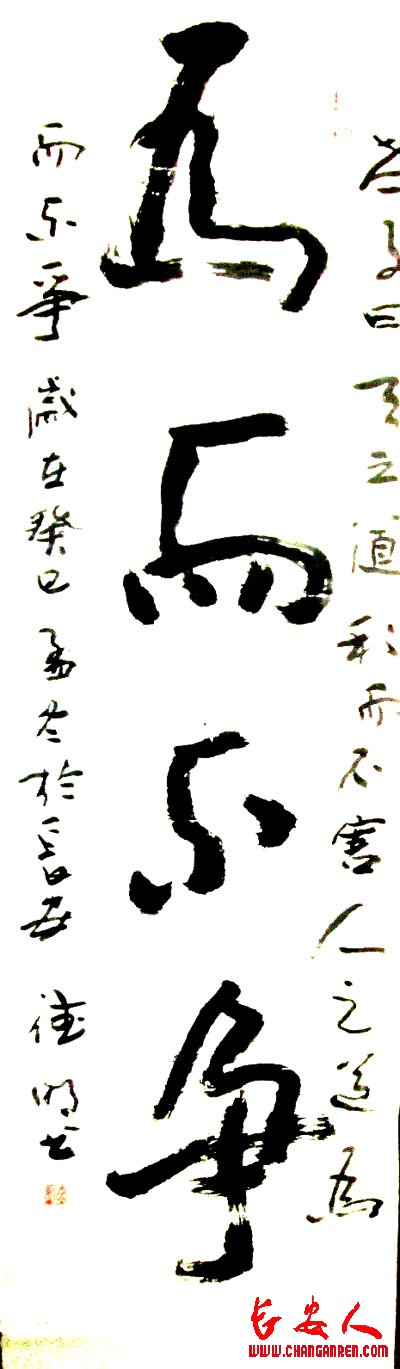 老子曰天之道利而不害人之道為
為而不爭
而不爭 歲在癸巳孟冬於長安 德明书
长安人
WWW.CHANGANREN.COM